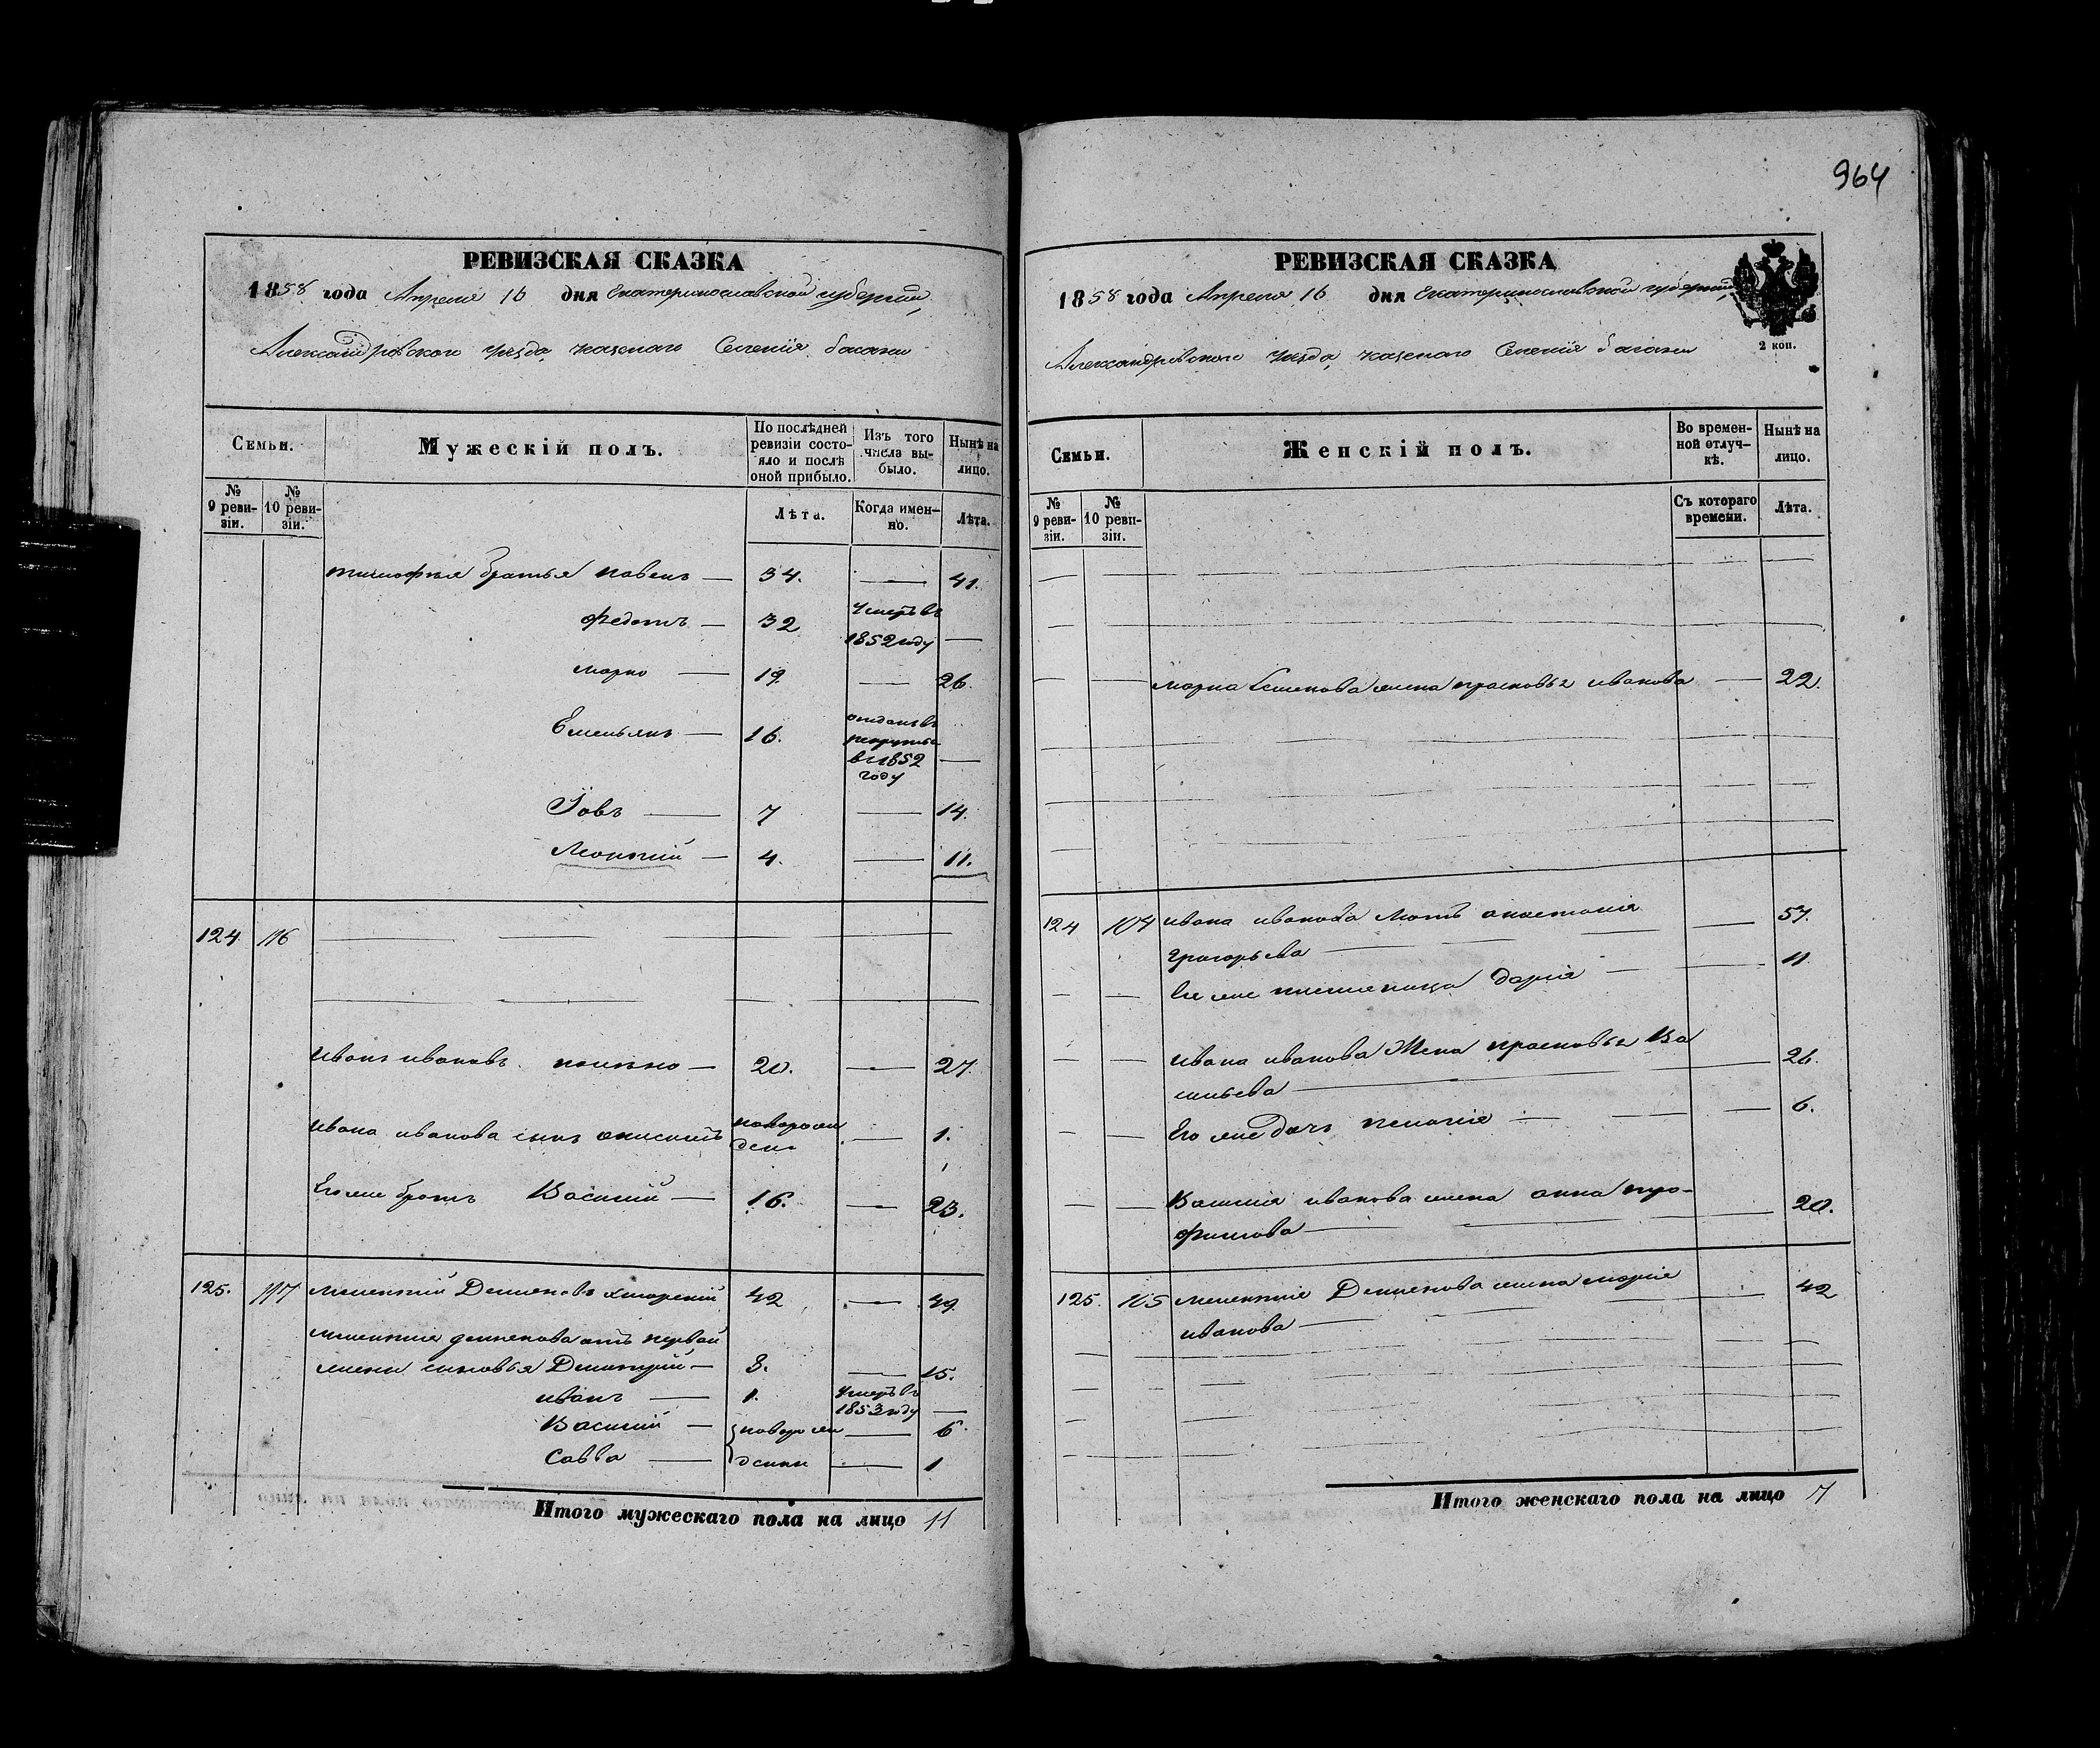 964
РЕВИЗСКАЯ СКАЗКА
1858 года Апреля 16 дня Екатеринославской губернии,
Александровского уезда, казенаго Селенія басани
Семьи.
Мужескій полъ.
По послѣдней ревизіи состояло и послѣ оной прибыло.
Изъ того числа выбыло.
Нынѣ на лицо.
№ 9 ревизіи.
№ 10 ревизіи.
Лѣта.
Когда именно.
Лѣта.
тимофея братья павелъ — 34. — 41.
федотъ — 32 Умеръ въ 1852 году —
марко — 19. — 26.
Емельянъ — 16. отданъ въ рекруты в 1852 году —
Іовъ — 7 — 14.
Леонтій — 4. — 11.
124. 116
иванъ ивановъ — 20. — 27.
ивана иванова сынъ новорожденъ — 1.
Его же братъ Василій — 16. — 23.
125. 117 мелентій Демьяновъ 42 — 49.
мелентія демьянова отъ первой
жены сыновья Дмитрій — 8. — 15.
иванъ — 1. Умеръ въ 1853 году —
Василій — новорож — 6.
Савва — дены — 1
Итого мужескаго пола на лицо 11
РЕВИЗСКАЯ СКАЗКА
1858 года Апреля 16 дня Екатеринославской губерніи,
Александровского уезда, казенаго Селенія басани
2 коп.
Семьи.
Женскій полъ.
Во временной отлучкѣ.
Нынѣ на лицо.
№ 9 ревизіи.
№ 10 ревизіи.
Съ котораго времени.
Лѣта.
марка жена прасковья иванова — 22.
124 104 ивана иванова мать анастасія — 57.
григорьева
Ее же племеница Дарія — 11
ивана иванова Жена прасковья Ва — 26.
сильева
Его же дочь пелагія — 6.
Василія иванова жена анна тро- — 20.
фимова
125. 105 мелентія Демьянова жена марія — 42
иванова
Итого женскаго пола на лицо 7